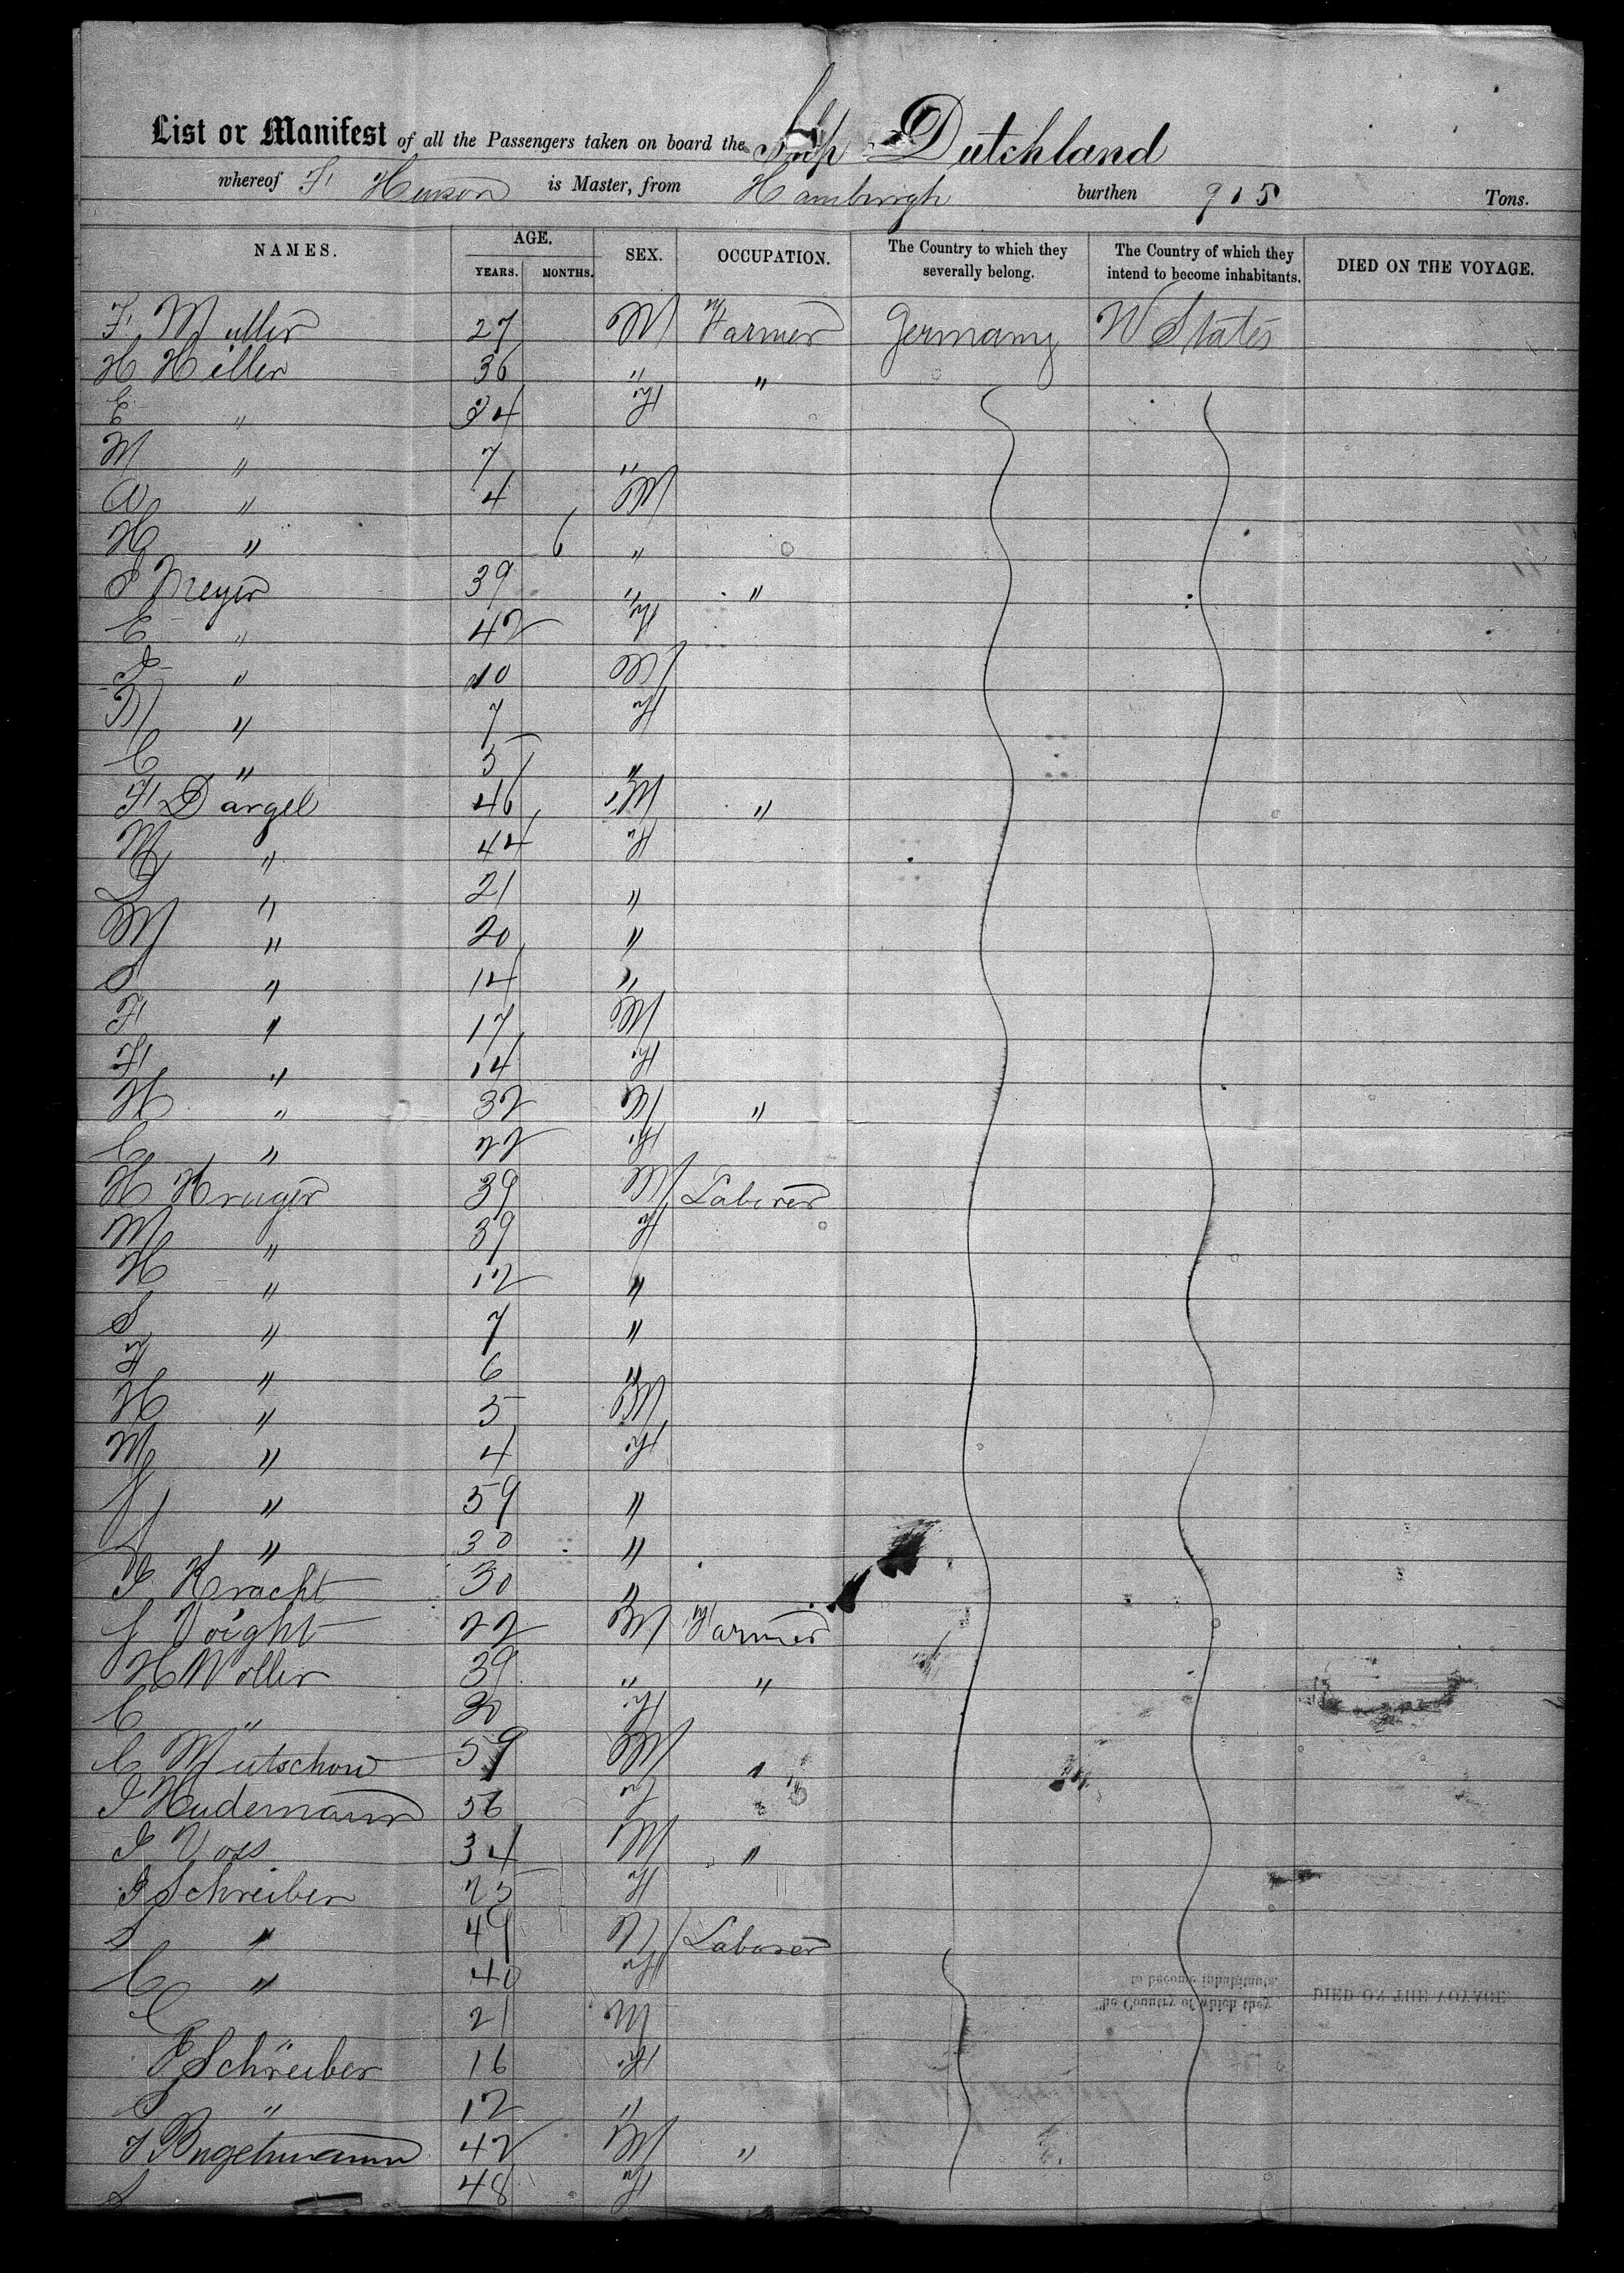 List or Manifest of all the Passengers taken on board the Ship Dutchland
whereof F is Master, from Hamburgh burthen 915 Tons.
NAMES. AGE. YEARS. MONTHS. SEX. OCCUPATION. The Country to which they severally belong. The Country of which they intend to become inhabitants. DIED ON THE VOYAGE.
F Muller 27 M Farmer Germany U States
H Hiller 36 " "
E " 34 F
M " 7 "
A " 4 M
H " 6 "
Meyer 39 " "
E " 42 F
" 10 M
" 7 F
C " 5 "
F Dargel 46 M "
M " 44 F
" 21 "
M " 20 "
S " 14 "
F " 17 M
F " 14 F
H " 32 M "
C " 22 F
H Kruger 39 M Laborer
M " 39 F
H " 12 "
S " 7 "
F " 6 "
H " 5 M
M " 4 F
" 59 "
" 30 "
I Kracht 30 "
J Voight 22 M Farmer
H Woller 39 " "
C " 30 F
C Mutschow 59 M "
I Hudemann 56 F
I Voss 34 M "
Schreiber 25 F
S " 49 M Laborer
C " 40 F
C 21 M
E Schreiber 16 F
" 12 "
42 M "
S 48 F
to become inhabitants.
The Country of which they
DIED ON THE VOYAGE